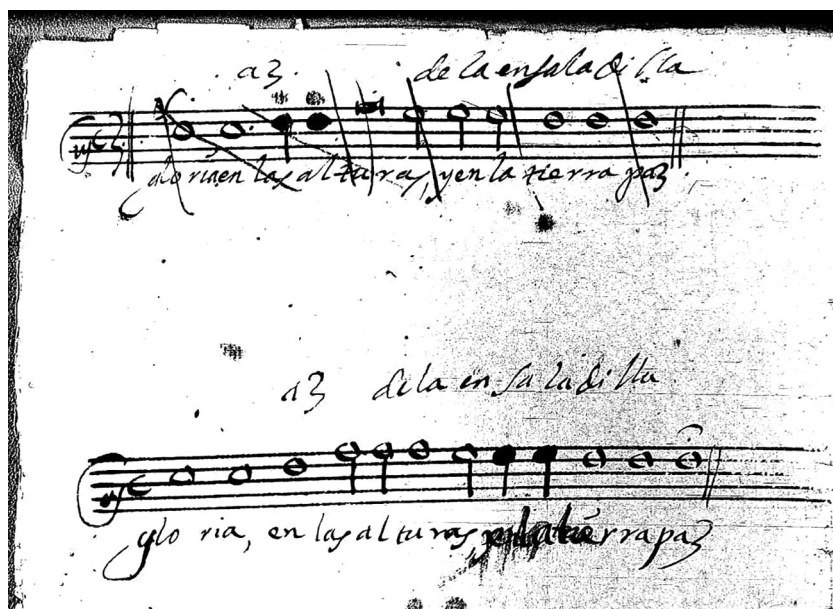 a3. de la ensaladilla
gloria en las alturas, y en la tierra paz.
a3 de la en sa ladilla
glo ria, en las alturas, tierra paz